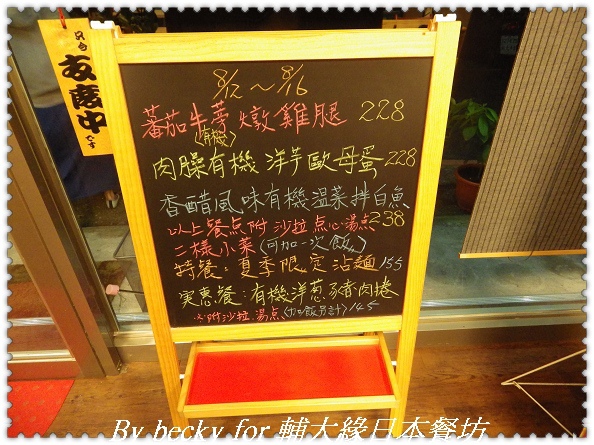 8/12～8/16
蕃茄牛蒡燉雞腿 228
(有機)
肉臊有機洋芋歐母蛋 228
香醋風味有機溫菜拌白魚
238
以上餐点附沙拉点心湯点
二樣小菜(可加一次飯)
特餐：夏季限定沾麵155
実惠餐：有機洋葱豚肉捲
附沙拉.湯点(加飯另計)145
By becky for 輔大緣日本餐坊